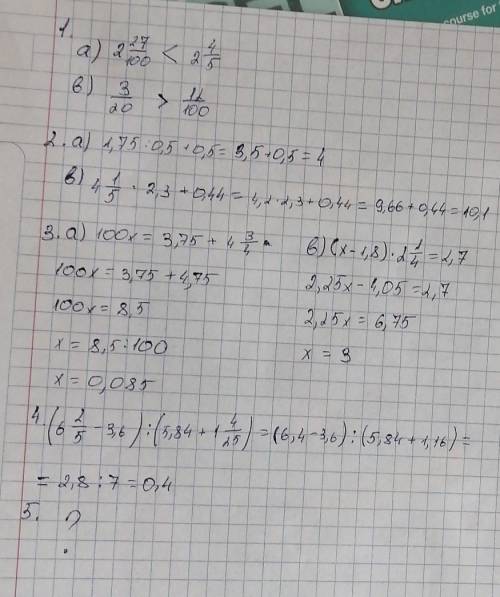 course for
1.
а) 2 27/100 < 2 4/5
в) 3/20 > 11/100
2. а) 1,75 : 0,5 + 0,5 = 3,5 + 0,5 = 4
в) 4 1/5 · 2,3 + 0,44 = 4,2 · 2,3 + 0,44 = 9,66 + 0,44 = 10,1
3. а) 100x = 3,75 + 4 3/4
100x = 3,75 + 4,75
100x = 8,5
x = 8,5 : 100
x = 0,085
в) (x - 1,8) · 2 1/4 = 2,7
2,25x - 4,05 = 2,7
2,25x = 6,75
x = 3
4. (6 2/5 - 3,6) : (5,84 + 1 4/25) = (6,4 - 3,6) : (5,84 + 1,16) =
= 2,8 : 7 = 0,4
5. ?